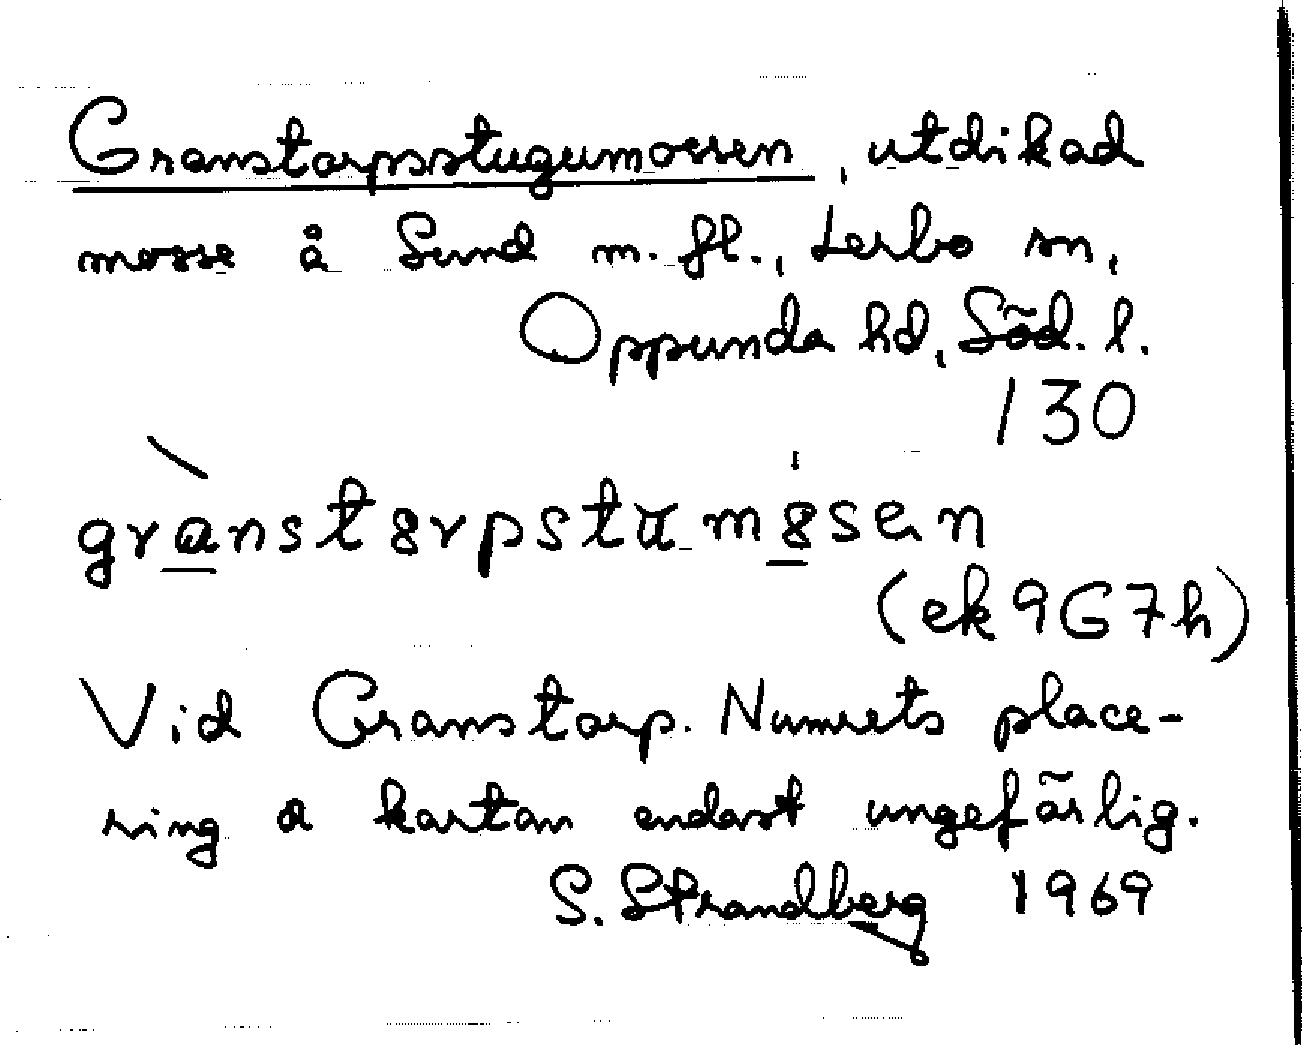 Granstorpsstugumossen, utdikad
mosse å Sund m. fl., Lerbo sn,
Oppunda hd, Söd. l.
130
grànstȣrpstumȣ̍sen
(ek 9G7h)
Vid Granstorp. Numrets place-
ring å kartan endast ungefärlig.
S. Strandberg 1969